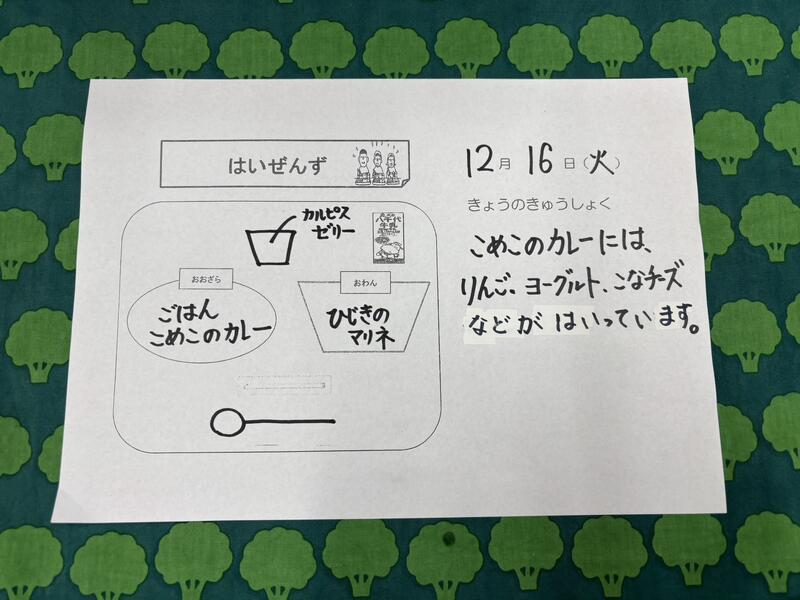 はいぜんず
カルピス
ゼリー
八千代
牛乳
おおざら
ごはん
こめこのカレー
おわん
ひじきの
マリネ
12月16日(火)
きょうのきゅうしょく
こめこのカレーには、
りんご、ヨーグルト、こなチーズ
などがはいっています。